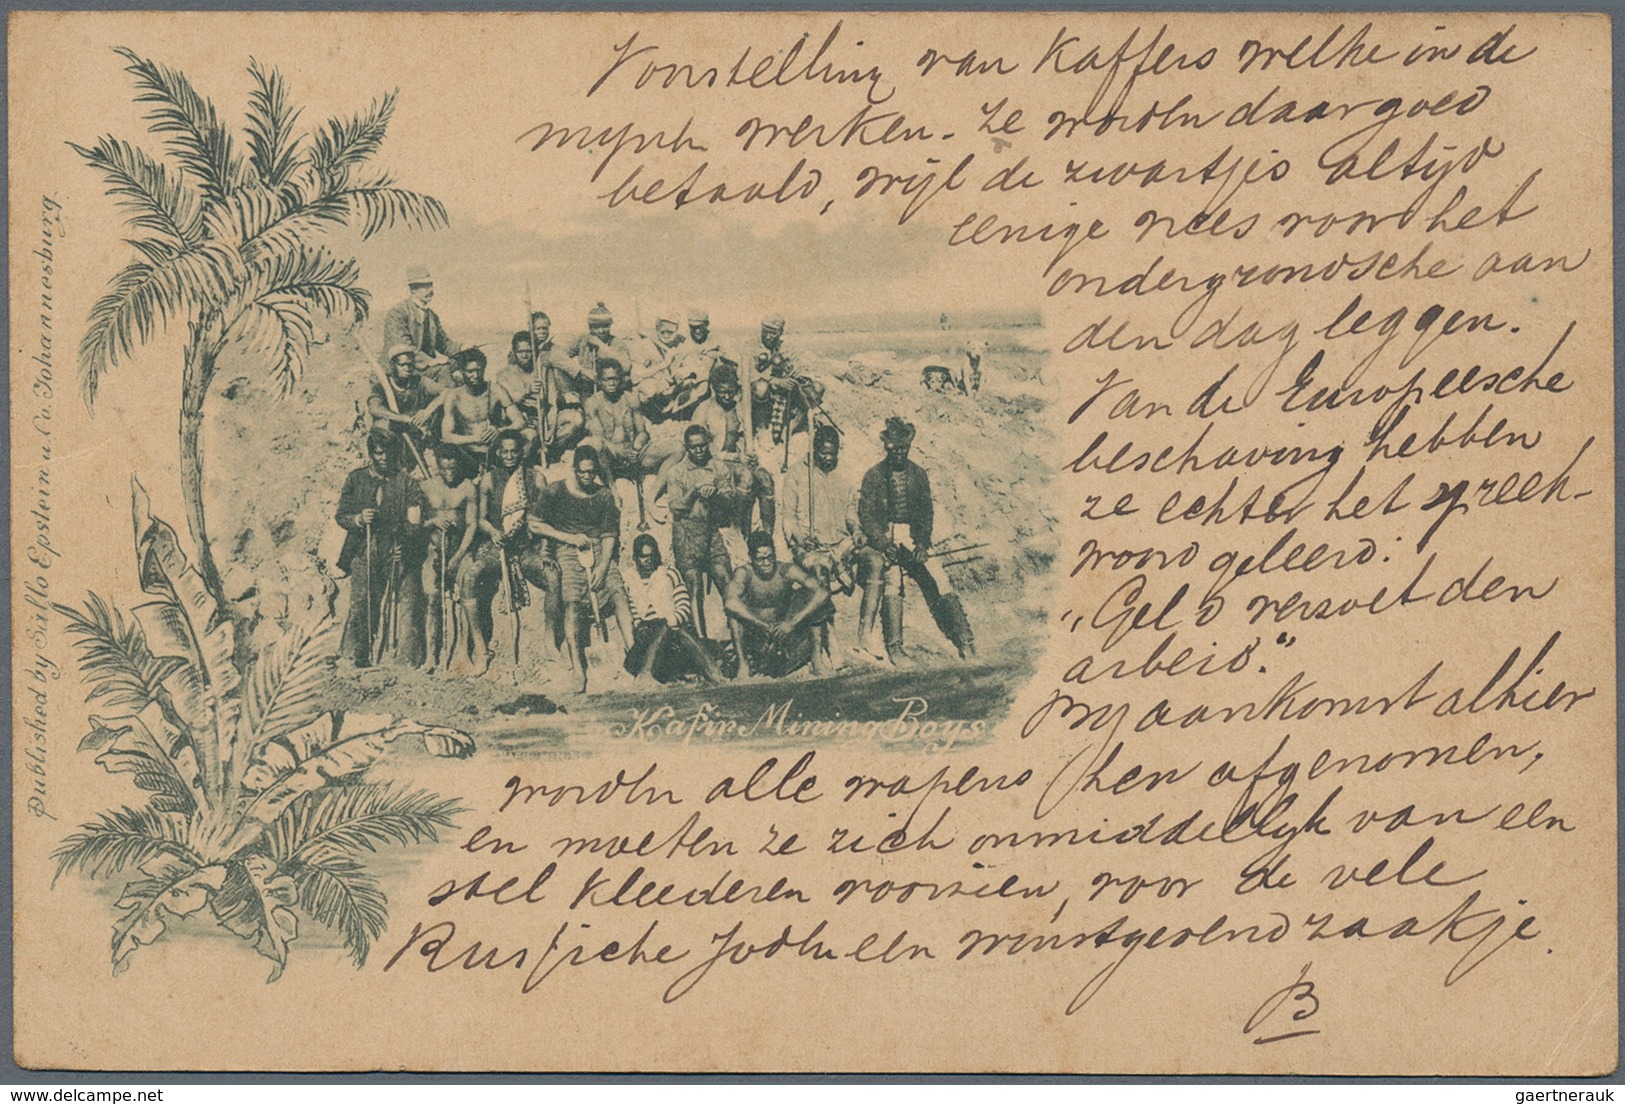 Voorstelling van Kaffers welke in de
mynen werken. Ze worden daar goed
betaald, wijl de zwartjes altijd
eenige vrees voor het
ondergrondsche aan
den dag leggen.
Van de Europeesche
beschaving hebben
ze echter het spreek-
woord geleerd:
"Geld verzoet den
arbeid."
By aankomst alhier
worden alle wapens hen afgenomen,
en moeten ze zich onmiddellyk van een
stel kleederen voorzien, voor de vele
Russische Joden een winstgevend zaakje.
B
Kafir Mining Boys
Published by Sallo Epstein u. Co. Johannesburg
gaertnerauk @ delcampe.net